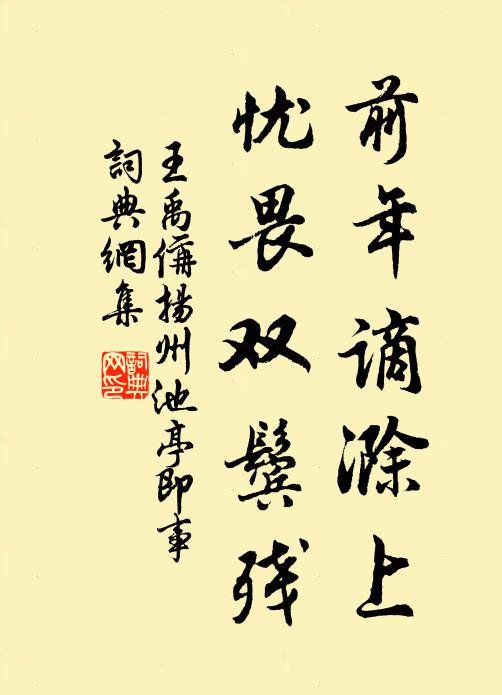 前年谪滁上
忧畏双鬓残
王禹偁揚州池亭即事
詞典網集
詞典网印